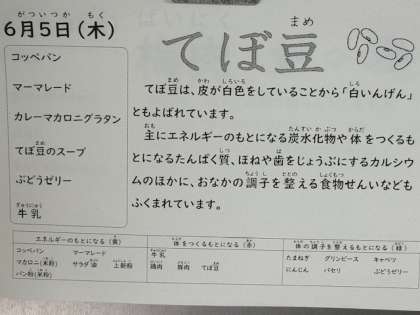 がついつか もく
6月5日(木)
コッペパン
マーマレード
カレーマカロニグラタン
てぼ豆のスープ
ぶどうゼリー
ぎゅうにゅう
牛乳
まめ
てぼ豆
まめ かわ しろいろ しろ
てぼ豆は、皮が白色をしていることから「白いんげん」
ともよばれています。
おも たんすいかぶつ からだ
主にエネルギーのもとになる炭水化物や体をつくるも
しつ は
とになるたんぱく質、ほねや歯をじょうぶにするカルシウ
ちょうし ととの しょくもつ
ムのほかに、おなかの調子を整える食物せんいなども
ふくまれています。
エネルギーのもとになる(黄)
コッペパン マーマレード
マカロニ(米粉) サラダ油 上新粉
パン粉(米粉)
体をつくるもとになる(赤)
牛乳
鶏肉 豚肉 てぼ豆
体の調子を整えるもとになる(緑)
たまねぎ グリンピース キャベツ
にんじん パセリ ぶどうゼリー